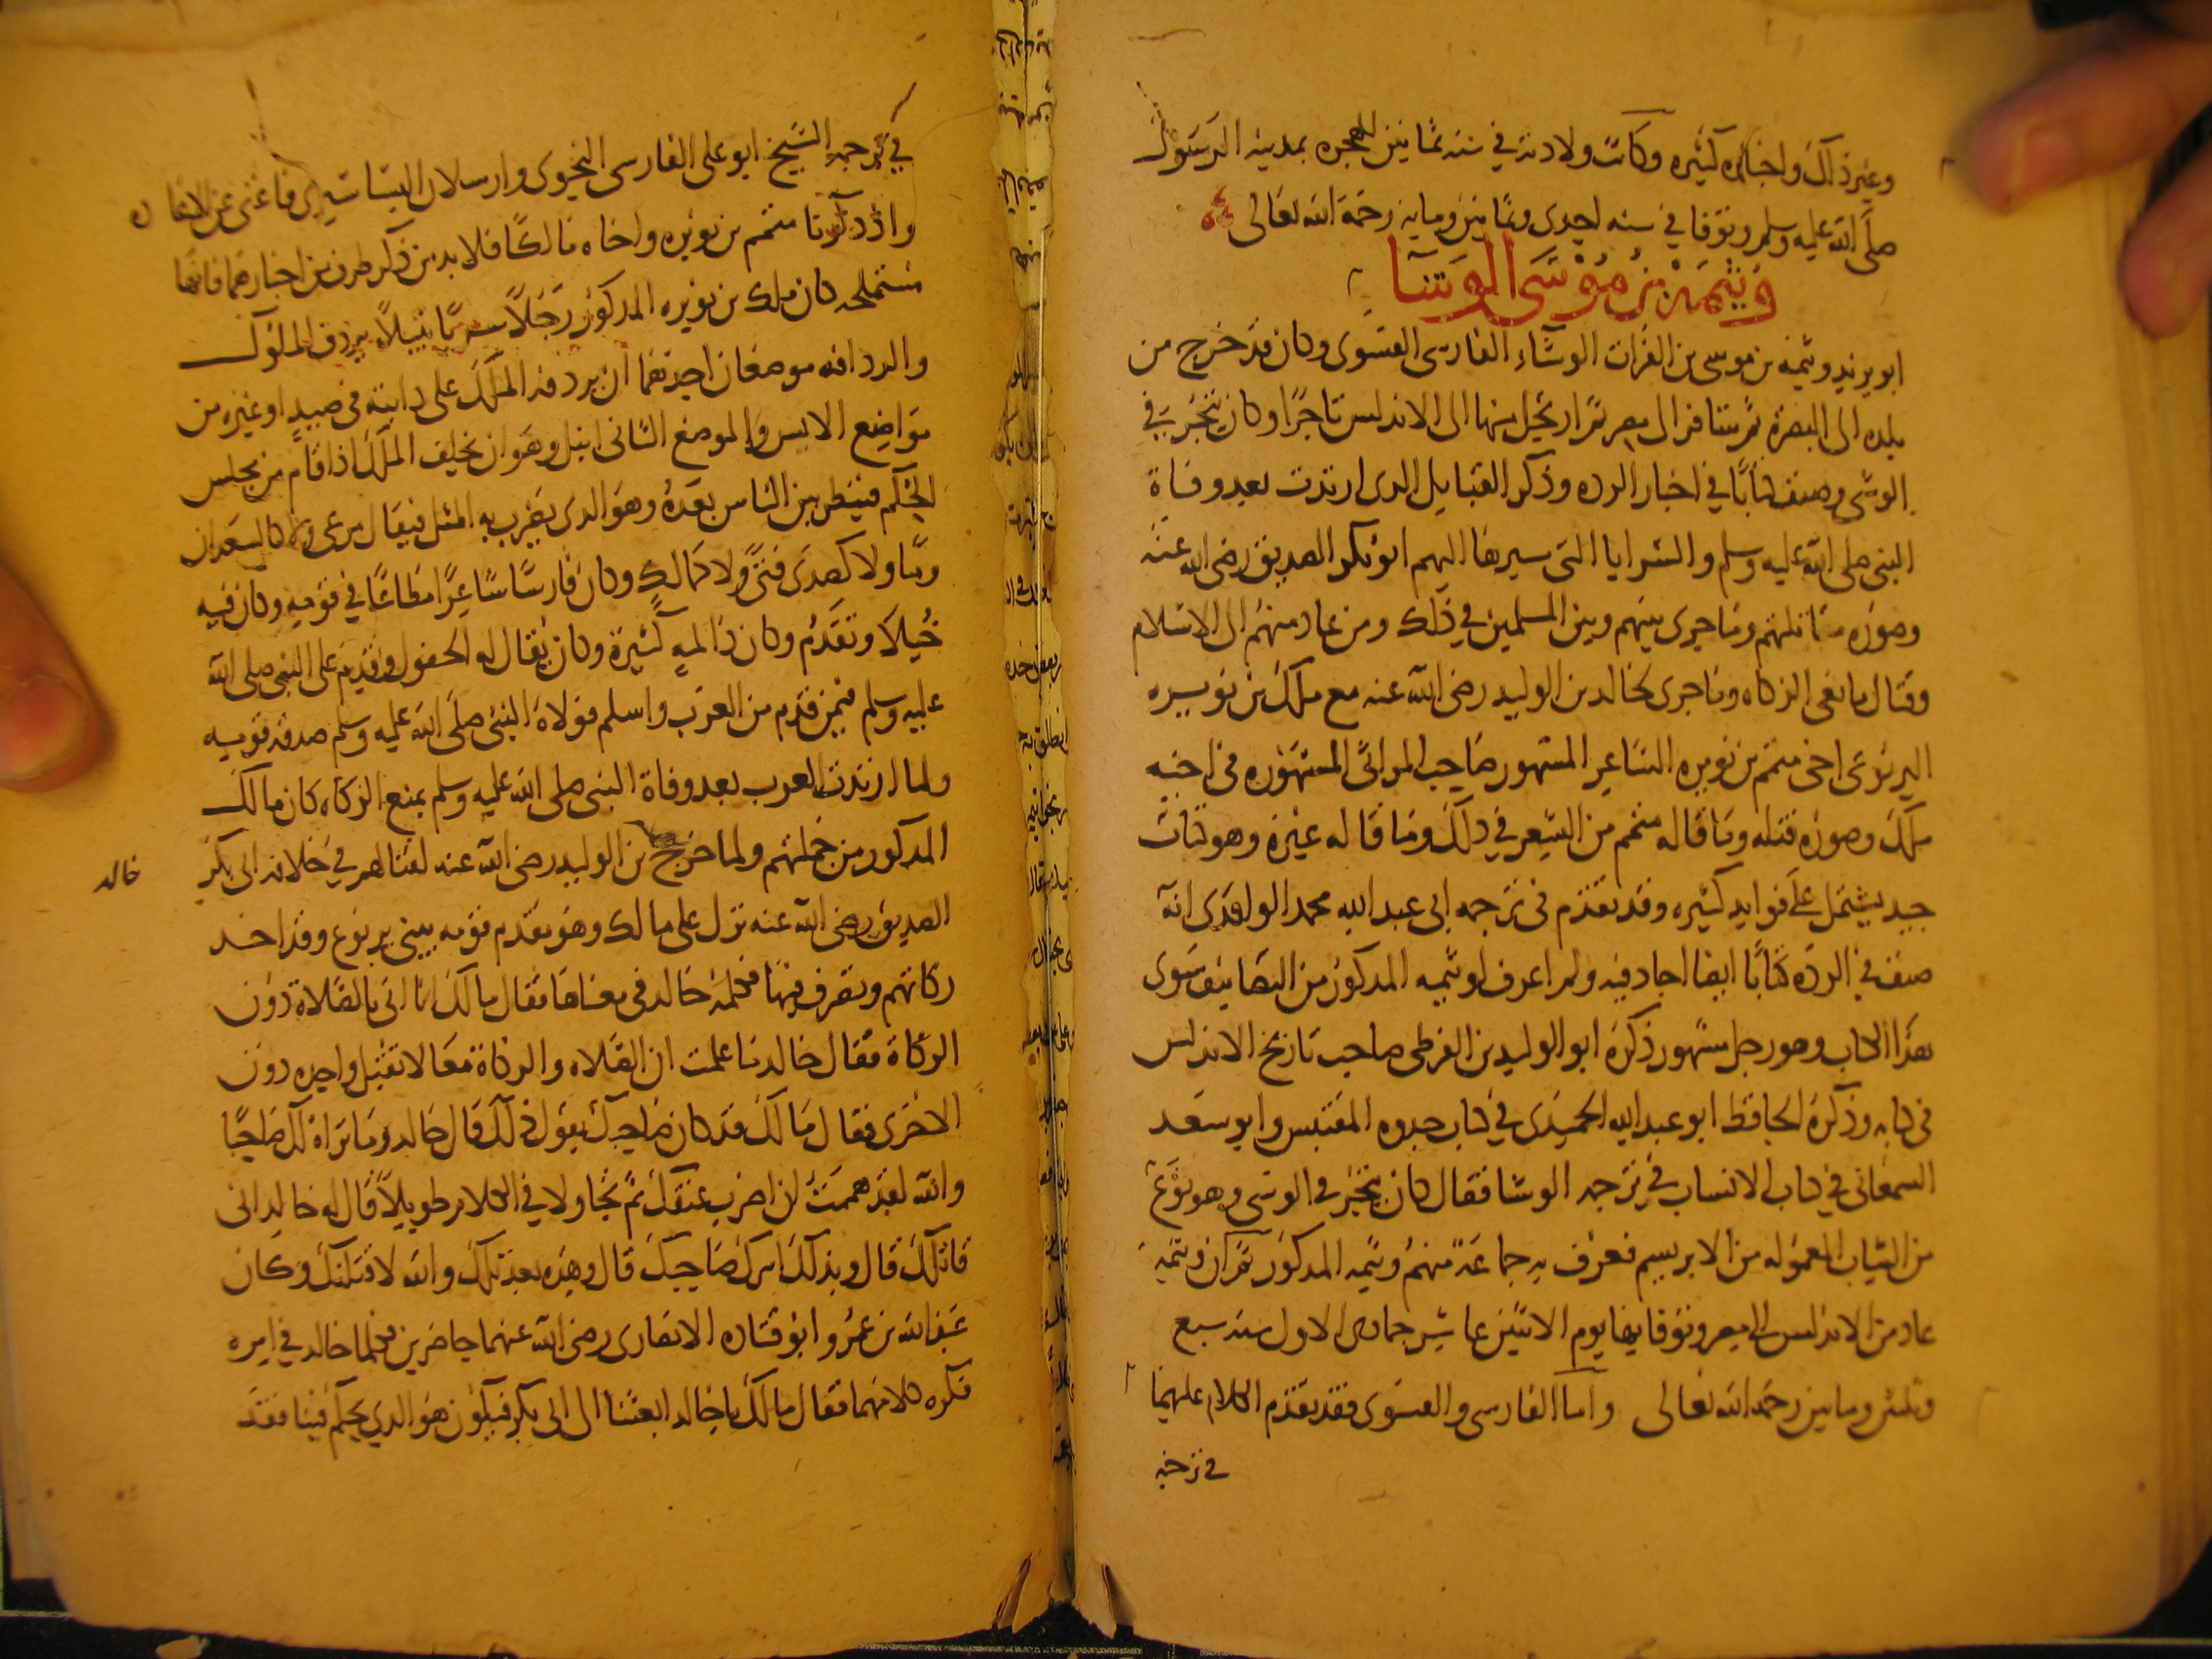 وغير ذلك واخباره كثيره وكانت ولادته في سنه ثمانين للهجره بمدينه الرسول
صلى الله عليه وسلم وتوفا في سنه احدى وثمانين ومايه رحمة الله تعالى
وثيمة بن موسى الوشا
ابو يزيد وثيمه بن موسى بن الفرات الوشاء الفارسى الفسوى وكان قد خرج من
بلده الى البصرة ثم سافر الى مصر ثم ارتحل منها الى الاندلس تاجرا وكان يتجر في
الوشى وصنف كتابا في اخبار الرده وذكر القبايل الدى ارتدت بعد وفاة
النبى صلى الله عليه وسلم والسرايا التى سيرها اليهم ابو بكر الصديق رضى الله عنه
وصوره مقاتلتهم وما جرى بينهم وبين المسلمين في ذلك ومن عاد منهم الى الاسلام
وقتال مانعى الزكاه وما جرى لخالد بن الوليد رضى الله عنه مع ملك بن نويره
اليربوعى اخى متمم بن نويره الشاعر المشهور صاحب المراثى المشهوره في اخيه
ملك وصوره قتله وما قاله متمم من الشعر في ذلك وما قاله غيره وهو كتاب
جيد يشتمل على فوايد كثيره وقد تقدم فى ترجمه ابى عبد الله محمد الواقدى انه
صنف في الرده كتابا ايضا اجاد فيه ولم اعرف لوثيمه المذكور من التصانيف سوى
هذا الكتاب وهو رجل مشهور ذكره ابو الوليد بن الفرضى صاحب تاريخ الاندلس
فى كتابه وذكره الحافظ ابو عبد الله الحميدى في كتاب جدوه المقتبس وابو سعد
السمعانى في كتاب الانساب في ترجمه الوشا فقال كان يتجر في الوشى وهو نوع
من الثياب المعموله من الابريسيم فعرف به جماعة منهم وثيمه المدكور ثم ان وثيمة
عاد من الاندلس الى مصر وتوفا بها يوم الاثنين عاشر جمادى الاول سنه سبع
وثلثين ومايتين رحمه الله تعالى واما الفارسى والفسوى فقد تقدم الكلام عليهما
في ترجمه
في ترجمه الشيخ ابو على الفارسى النحوى وارسلان البساسيرى فاغنى عن الاعاده
واذ ذكرنا متمم بن نويره واخاه مالكا فلا بد من ذكر طرف من اخبارهما فانها
مستملحه كان ملك بن نويره المدكور رجلا سريا نبيلا يردف الملوك
والردافه موضعان احدهما ان يردفه الملك على دابته فى صيد او غيره من
مواضع الانس والموضع الثانى انبل وهو ان يخلف الملك اذا قام من مجلس
الحكم فينظر بين الناس بعده وهو الدى يضرب به المثل فيقال مرعى ولا كالسعدان
وما ولا كصدى وفتى ولا كمالك وكان فارسا شاعرا مطاعا في قومه وكان فيه
خيلا وتقدم وكان ذا لمه كثيرة وكان يقال له الجفول وقدم على النبى صلى الله
عليه وسلم فيمن قدم من العرب واسلم فولاه النبى صلى الله عليه وسلم صدقه قومه
ولما ارتدت العرب بعد وفاة النبى صلى الله عليه وسلم بمنع الزكاه كان مالك
المدكور من جملتهم ولما خرج بن الوليد رضى الله عنه لقتالهم في خلافه ابى بكر
خالد
الصديق رضى الله عنه نزل على مالك وهو مقدم قومه بيني يربوع وقد اخد
زكاتهم وتصرف فيها فكلمه خالد فى معناها فقال مالك انا اتى بالصلاة دون
الزكاة فقال خالد ما علمت ان الصلاه والزكاة معا لا تقبل واحده دون
الاخرى فقال مالك قد كان صاحبك يقول ذلك قال خالد وما تراه لك صاحبا
والله لقد هممت ان اضرب عنقك ثم تجاولا في الكلام طويلا قال له خالد انى
قاتلك قال وبذلك امرك صاحبك قال وهذه بعد تلك والله لاقتلنك وكان
عبد الله بن عمر وابو قتاده الانصارى رضى الله عنهما حاضرين فكلما خالد في امره
فكره كلامهما فقال مالك يا خالد ابعثنا الى ابى بكر فيكون هو الدي يحكم فينا فقد